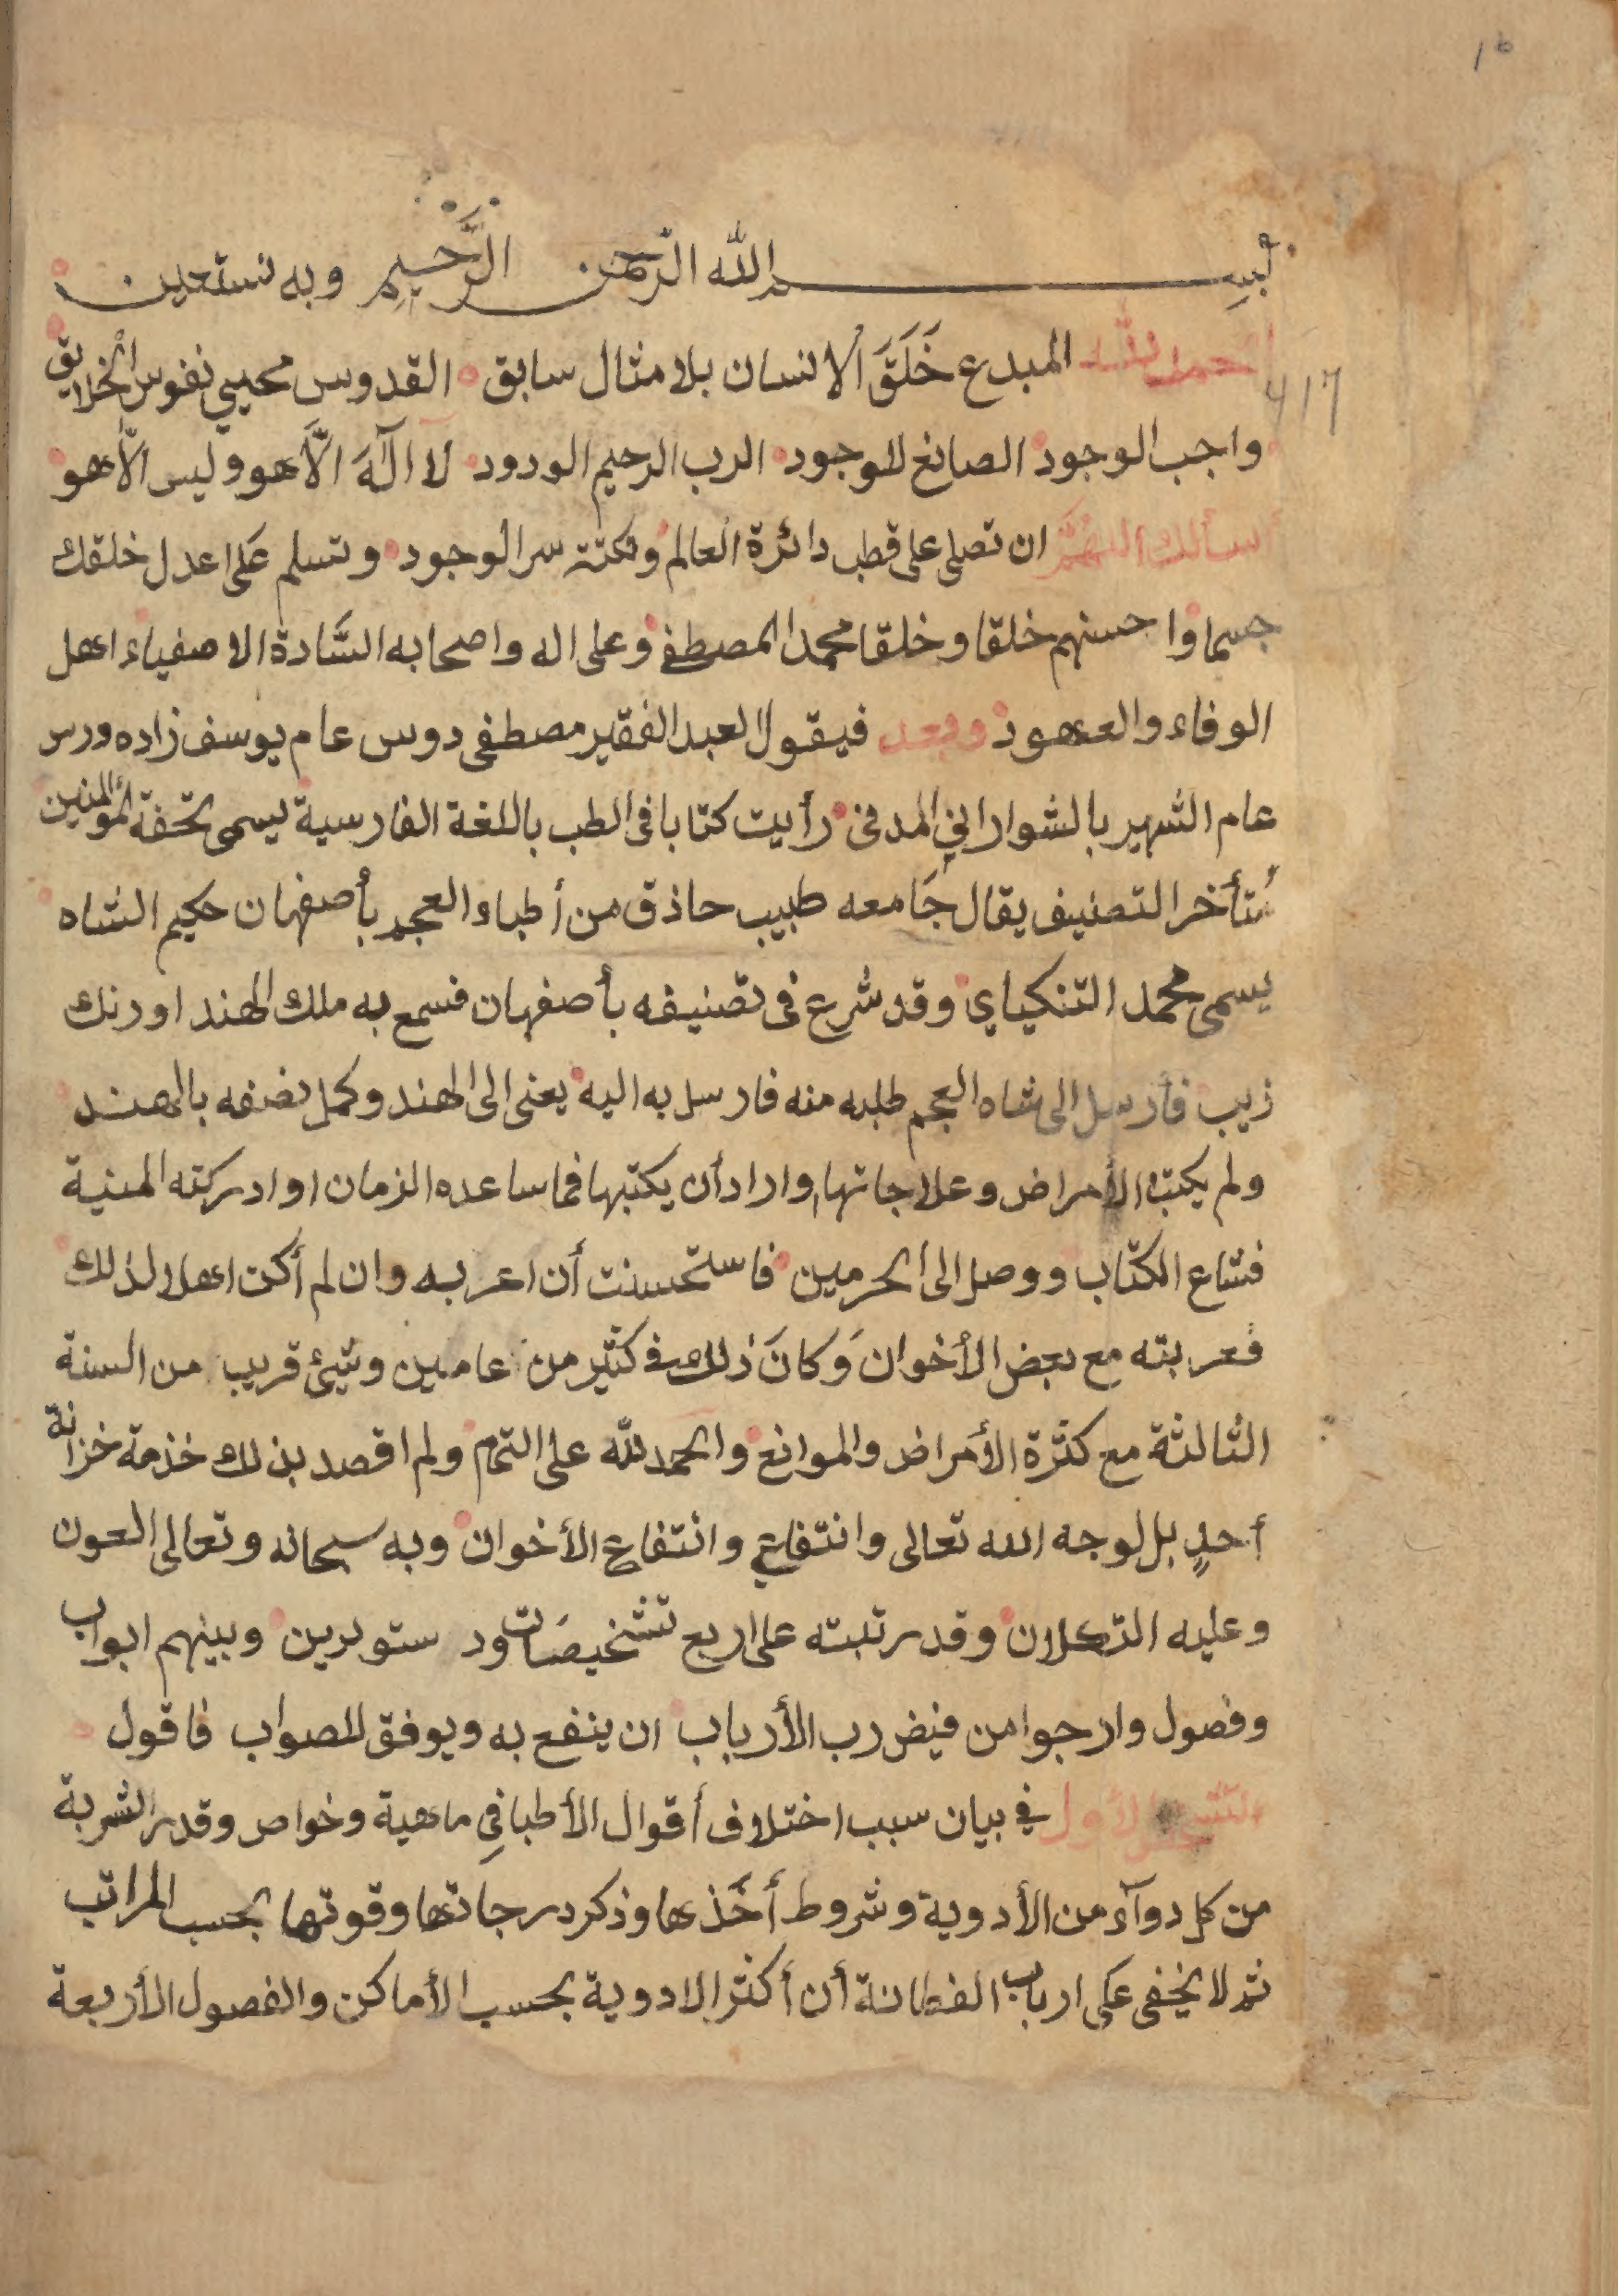 16
بسم الله الرحمن الرَّحيم وبه نستعين
الحمد لله المبدع خَلَقَ الإنسان بلا مثال سابق القدوس محيي نفوس الخلايق
417
واجب الوجود الصانع للوجود الرب الرحيم الودود لا الٓهَ الَّا هو وليس الَّا هو
أسألك اللهمَّ ان تصلى على قطب دائرة العالم ونكتة سر الوجود وتسلم عَلى اعدل خلقك
جسما واحسنهم خلقا وخلقا محمد المصطفى وعلى اله واصحابه السَّادة الاصفياء اهل
الوفاء والعهود وبعد فيقول العبد الفقير مصطفى دوس عام يوسف زاده ورس
عام الشهير بالشوارانيِ المدنى رأيت كتابا فى الطب باللغة الفارسية يسمى تحفة المؤمنين
مُتأخر التصنيف يقال جَامعه طبيب حاذق من أطباء العجم بأصفهان حكيم الشاه
يسمى محمد التنكياي وقد شرع فى تصنيفه بأصفهان فسمع به ملك الهند اورنك
زيب فأرسل الى شاه العجم طلبه منه فارسل به اليه يعنى الى الهند وكمل نصفه بالهند
ولم يكتب الأمراض وعلاجاتها وارادأن يكتبها فما ساعده الزمان اوادركته المنية
فشاع الكتاب ووصل الى الحرمين فاستحسنت أن اعربه وان لم أكن اهلا لذلك
فعربته مع بعض الأخوان وَكانَ ذلك فى كثير من عامين وشيئ قريب من السنة
الثالثة مع كثرة الأمراض والموانع والحمد لله على التمام ولم اقصد بذلك خذمة خزانة
أحدٍ بل لوجه الله تعالى وانتفاعي وانتفاع الأخوان وبه سبحانه وتعالى العون
وعليه التكلان وقد رتبته على اربع تشخيصَات ودستورين وبينهم ابواب
وفصول وارجوا من فيض رب الأرباب ان ينفع به ويوفق للصواب فاقول
التشخيص الأول في بيان سبب اختلاف أقوال الأطبا في ماهية وخواص وقدر الشربة
من كل دوآء من الأدوية وشروط أخَذها وذكر درجاتها وقوتها بحسب المراتب
ثم لا يخفى عَلى ارباب الفطانة أن أكثر الادوية بحسب الأماكن والفصول الأربعة